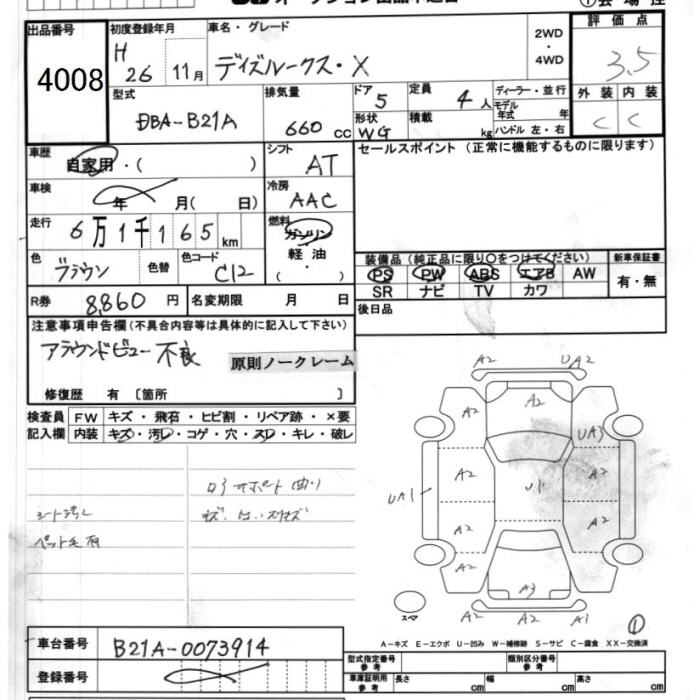 出品番号
4008
初度登録年月
H 26 11月
車名・グレード
デイズルークス・X
2WD
・
4WD
評価点
3.5
型式
DBA-B21A
排気量
660 cc
ドア 5
形状 WG
定員 4 人
積載 kg
ディーラー・並行
モデル年式 年
ハンドル 左・右
外装 内装
C C
車歴
自家用・( )
シフト AT
セールスポイント(正常に機能するものに限ります)
車検 年 月( 日)
冷房 AAC
走行 6万1千165 km
燃料
ガソリン
軽油
( ・ )
色 ブラウン 色替 色コード C12
装備品(純正品に限り〇をつけてください) 新車保証書
PS PW ABS エアB AW
SR ナビ TV カワ
有・無
R券 8,860 円 名変期限 月 日
後日品
注意事項申告欄(不具合内容等は具体的に記入して下さい)
アラウンドビュー不良
原則ノークレーム
修復歴 有 〔箇所 〕
検査員 FW キズ・飛石・ヒビ割・リペア跡・×要
記入欄 内装 キズ・汚レ・コゲ・穴・スレ・キレ・破レ
シート汚レ
ペット毛有
A2 UA2
A2 A2 A2
UA3
A2 A2
UA1 U1
A2 A2
A2 A3 A2
A2 A1
スペア
①
A-キズ E-エクボ U-凹み W-補修跡 S-サビ C-腐食 XX-交換済
車台番号 B21A-0073914
登録番号
型式指定番号 参考 類別区分番号 参考
車庫証明用 参考 長さ cm 幅 cm 高さ cm